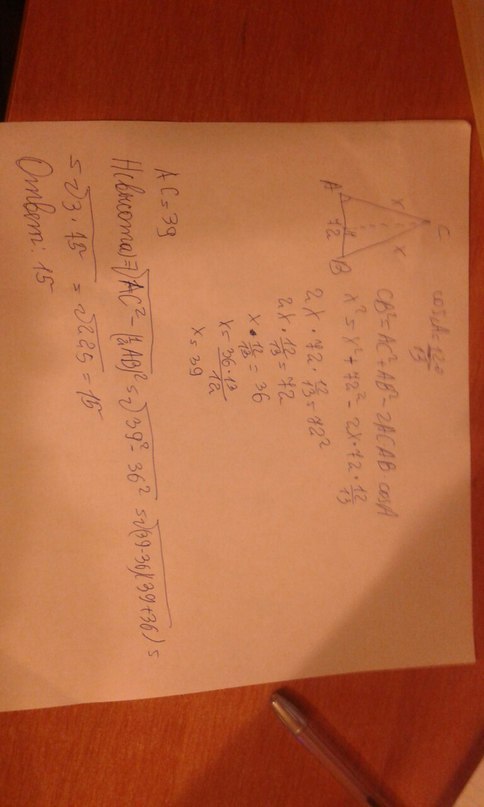 C
x x
A 72 B
cosA = 12/13
CB² = AC² + AB² - 2AC AB cosA
x² = x² + 72² - 2x · 72 · 12/13
2x · 72 · 12/13 = 72²
2x · 12/13 = 72
x · 12/13 = 36
x = 36 · 13/12
x = 39
AC = 39
H(высота) = √AC² - (½AB)² = √39² - 36² = √(39-36)(39+36) =
= √3 · 75 = √225 = 15
Ответ: 15